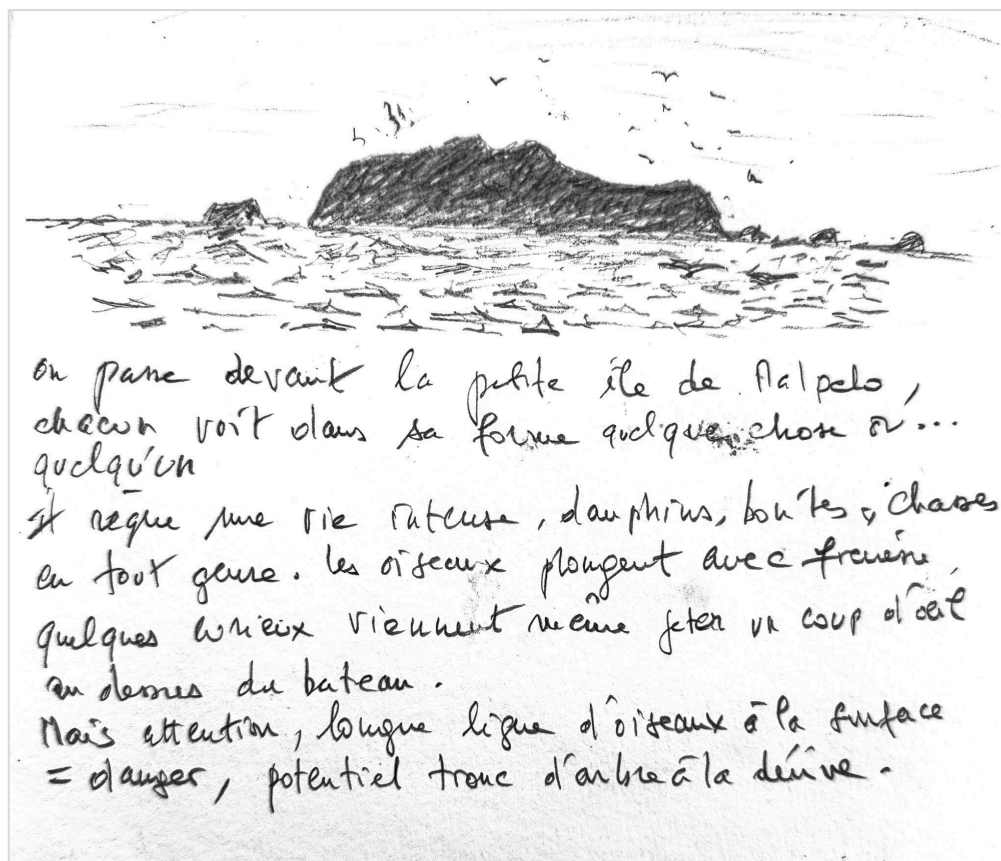 on passe devant la petite île de Malpelo,
chacun voit dans sa forme quelque chose ou...
quelqu'un
il règne une vie intense, dauphins, bonites, chasses
en tout genre. les oiseaux plongent avec frénésie,
quelques curieux viennent même jeter un coup d'œil
au dessus du bateau.
Mais attention, longue ligne d'oiseaux à la surface
= danger, potentiel tronc d'arbre à la dérive.